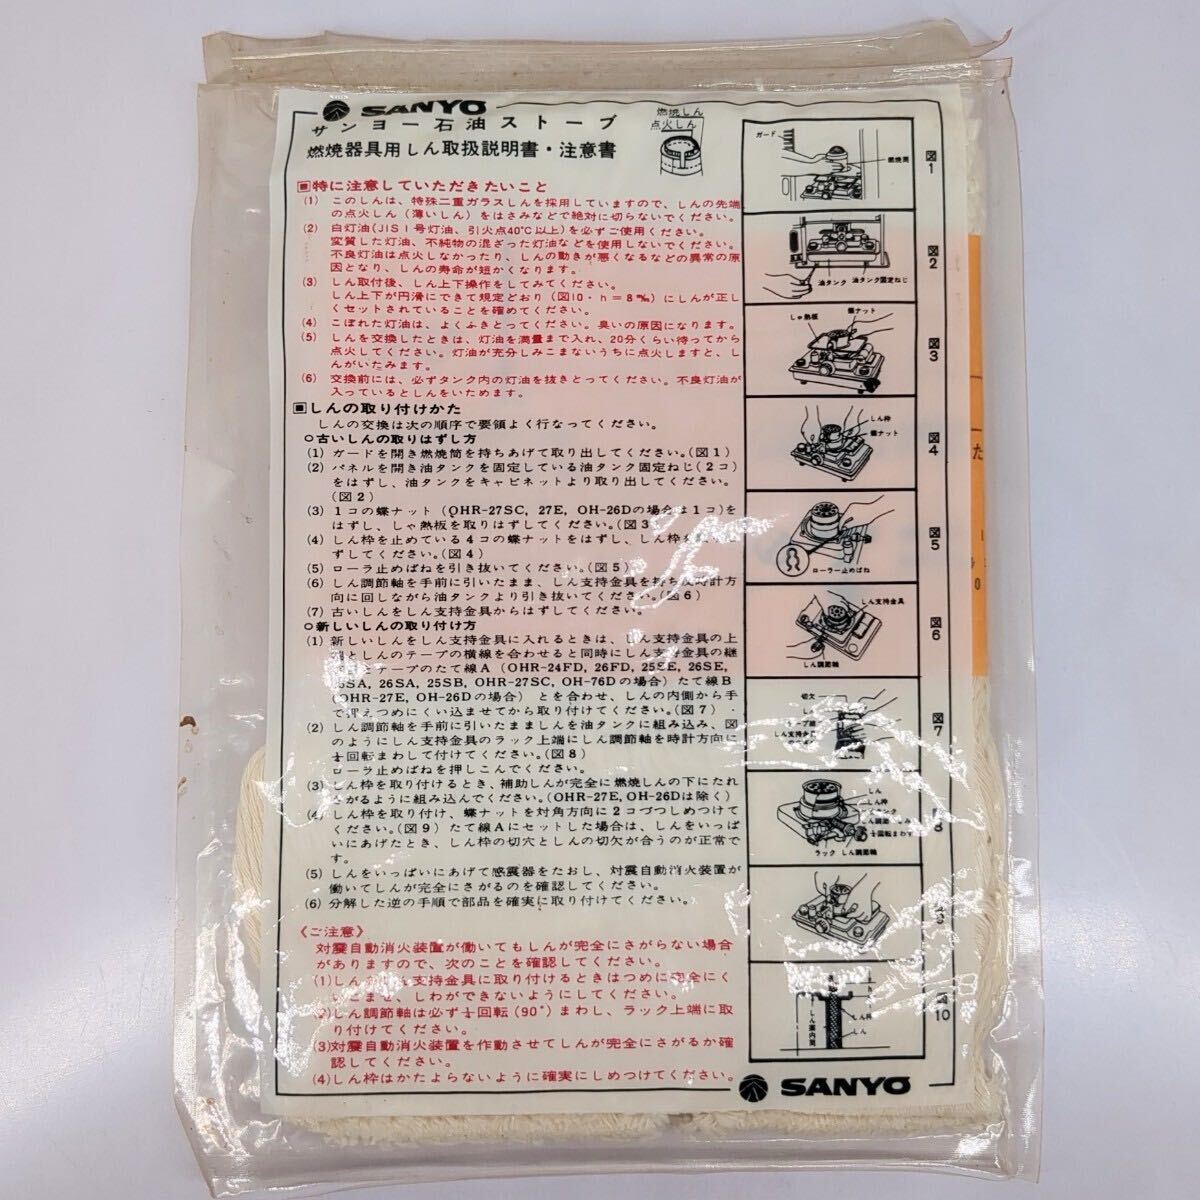 SANYO
サンヨー石油ストーブ
燃焼器具用しん取扱説明書・注意書
燃焼しん
点火しん
■特に注意していただきたいこと
(1) このしんは、特殊二重ガラスしんを採用していますので、しんの先端
の点火しん（薄いしん）をはさみなどで絶対に切らないでください。
(2) 白灯油(JIS1号灯油、引火点40℃以上)を必ずご使用ください。
変質した灯油、不純物の混ざった灯油などを使用しないでください。
不良灯油は点火しなかったり、しんの動きが悪くなるなどの異常の原
因となり、しんの寿命が短かくなります。
(3) しん取付後、しん上下操作をしてみてください。
しん上下が円滑にできて規定どおり（図10・h＝8㎜）にしんが正し
くセットされていることを確めてください。
(4) こぼれた灯油は、よくふきとってください。臭いの原因になります。
(5) しんを交換したときは、灯油を満量まで入れ、20分くらい待ってから
点火してください。灯油が充分しみこまないうちに点火しますと、し
んがいたみます。
(6) 交換前には、必ずタンク内の灯油を抜きとってください。不良灯油が
入っているとしんをいためます。
■しんの取り付けかた
しんの交換は次の順序で要領よく行なってください。
○古いしんの取りはずし方
(1) ガードを開き燃焼筒を持ちあげて取り出してください。(図1)
(2) パネルを開き油タンクを固定している油タンク固定ねじ(2コ)
をはずし、油タンクをキャビネットより取り出してください。
(図2)
(3) 1コの蝶ナット（OHR-27SC, 27E, OH-26Dの場合は1コ)を
はずし、しゃ熱板を取りはずしてください。(図3
(4) しん枠を止めている4コの蝶ナットをはずし、しん枠を
ずしてください。(図4)
(5) ローラ止めばねを引き抜いてください。(図5)
(6) しん調節軸を手前に引いたまま、しん支持金具を持ち反時計方
向に回しながら油タンクより引き抜いてください。(図6)
(7) 古いしんをしん支持金具からはずしてください。
○新しいしんの取り付け方
(1) 新しいしんをしん支持金具に入れるときは、しん支持金具の上
端としんのテープの横線を合わせると同時にしん支持金具の継
とテープのたて線A（OHR-24FD, 26FD, 25SE, 26SE,
SA, 26SA, 25SB, OHR-27SC, OH-76Dの場合）たて線B
(OHR-27E, OH-26Dの場合） とを合わせ、しんの内側から手
で押えつめにくい込ませてから取り付けてください。(図7)
(2) しん調節軸を手前に引いたまましんを油タンクに組み込み、図
のようにしん支持金具のラック上端にしん調節軸を時計方向に
¼回転まわして付けてください。(図8)
ローラ止めばねを押しこんでください。
(3) しん枠を取り付けるとき、補助しんが完全に燃焼しんの下にたれ
さがるように組み込んでください。(OHR-27E, OH-26Dは除く)
(4) しん枠を取り付け、蝶ナットを対角方向に2コづつしめつけて
ください。(図9) たて線Aにセットした場合は、しんをいっぱ
いにあげたとき、しん枠の切穴としんの切欠が合うのが正常で
す。
(5) しんをいっぱいにあげて感震器をたおし、対震自動消火装置が
働いてしんが完全にさがるのを確認してください。
(6) 分解した逆の手順で部品を確実に取り付けてください。
《ご注意》
対震自動消火装置が働いてもしんが完全にさがらない場合
がありますので、次のことを確認してください。
(1)しんをしん支持金具に取り付けるときはつめに完全にく
いこませ、しわができないようにしてください。
(2)しん調節軸は必ず¼回転(90°)まわし、ラック上端に取
り付けてください。
(3)対震自動消火装置を作動させてしんが完全にさがるか確
認してください。
(4)しん枠はかたよらないように確実にしめつけてください。
ガード
燃焼筒
図1
油タンク 油タンク固定ねじ
図2
しゃ熱板
蝶ナット
図3
しん枠
蝶ナット
図4
ローラー止めばね
図5
しん支持金具
しん調節軸
図6
切欠
しん支持金具
図7
しん
しん枠
¼回転まわす
ラック しん調節軸
しん枠
しん
しん案内筒
10
SANYO
た